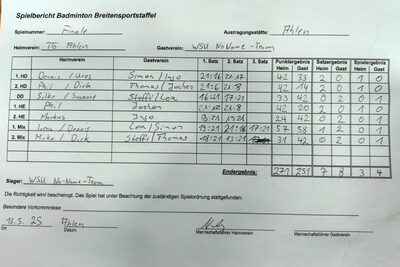 Spielbericht Badminton Breitensportstaffel
Spielnummer: Finale Austragungsstätte: Ahlen
Heimverein: TG Ahlen Gastverein: WSU NoName-Team
Heimverein Gastverein 1. Satz 2. Satz 3. Satz Punktergebnis Satzergebnis Spielergebnis
Heim Gast Heim Gast Heim Gast
1. HD Dennis / Uros Simon / Ingo 21:16 21:17 42 33 2 0 1 0
2. HD Phil / Dirk Thomas / Jochen 21:6 21:8 42 14 2 0 1 0
DD Silke / Susanne Steffi / Lea 16:21 17:21 33 42 0 2 0 1
1. HE Phil Jochen 42 20 2 0 1 0
2. HE Markus Ingo 42 0 2 0 1
1. Mix / Dennis Lea / Simon 19:21 21:16 17:21 57 58 1 2 0 1
2. Mix / Dirk Steffi / Thomas 18:21 13:21 31 42 0 2 0 1
Endergebnis: 271 251 7 8 3 4
Sieger: WSU No-Name-Team
Die Richtigkeit wird bescheinigt. Das Spiel hat unter Beachtung der zuständigen Spielordnung stattgefunden.
Besondere Vorkommnisse:
13.5.25 Ahlen
Ort Datum Mannschaftsführer Heimverein Mannschaftsführer Gastverein